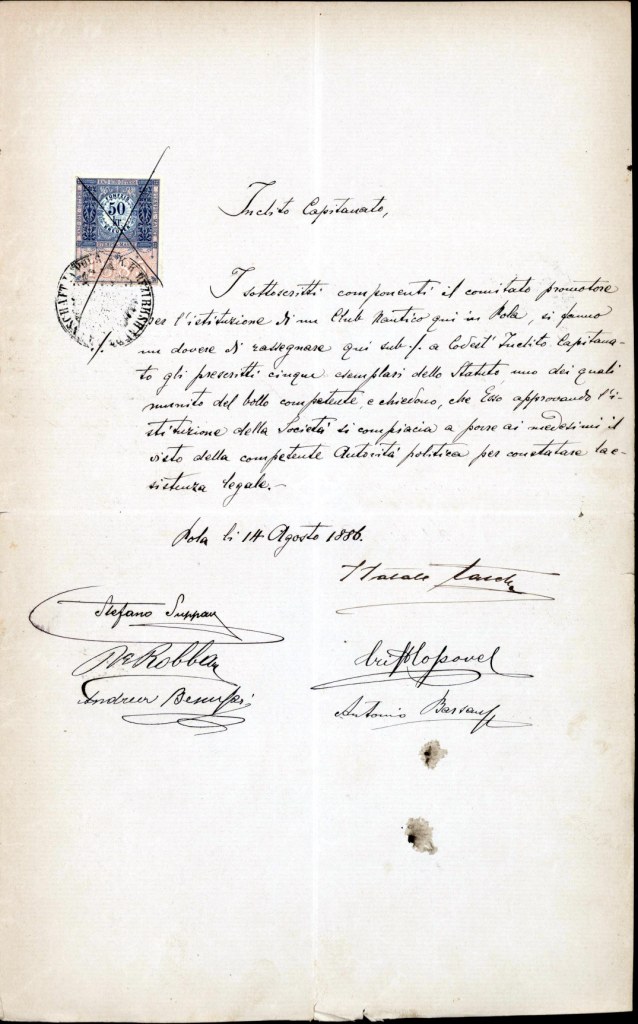 50
kr.
K.K. BEZIRKSHAUPTMANNSCHAFT POLA
Inclito Capitanato,
I sottoscritti componenti il comitato promotore
per l'istituzione di un Club Nautico qui in Pola, si fanno
./. un dovere di rassegnare qui sub ./. a Codest' Inclito Capitana-
to gli prescritti cinque esemplari dello Statuto uno dei quali
munito del bollo competente, e chiedono, che Esso approvando l'i-
stituzione della Società si compiacia a porre ai medesimi il
visto della competente Autorità politica per constatare la e-
sistenza legale.-
Pola li 14 Agosto 1886.
Stefano Suppan
De Robba
Andrea
Antonio